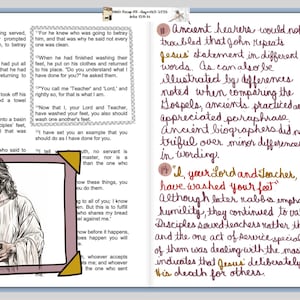 served,
prompted
, to betray
had put all
that he had
returning to
took off his
d a towel
nto a basin
sciples' feet,
that was
who said to
"For he knew who was going to betray
him, and that was why he said not every
one was clean.
"When he had finished washing their
feet, he put on his clothes and returned
to his place. "Do you understand what I
have done for you?" he asked them.
"You call me 'Teacher' and 'Lord,' and
rightly so, for that is what I am.
"Now that I, your Lord and Teacher,
have washed your feet, you also should
wash one another's feet.
"I have set you an example that you
should do as I have done for you.
no servant is
master, nor is a
than the one who
now these things, you
you do them.
to all of you; I know
en. But this is to fulfill
who shares my bread
against me.'
now before it happens,
happen you will
whoever accepts
me; and whoever
the one who sent
11 Ancient hearers would not
troubled that John repeats
Jesus' statement in different
words. As can also be
illustrated by differences
noted when comparing the
Gospels, ancients practiced a
appreciated paraphrase.
Ancient biographers did n
triful over minor differences
in wording.
14 "I, your Lord and Teacher,
have washed your feet"
Although later rabbis empha
humility, they continued to va
Disciples served teachers rather tha
and the one act of service, special
of them was dealing with the mas
indicates that Jesus deliberately
His death for others.